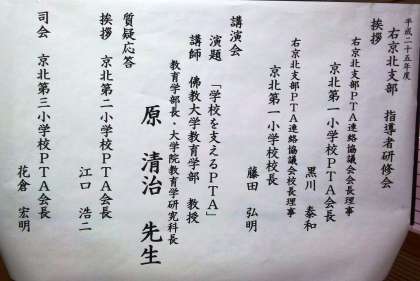 平成二十五年度
右京北支部 指導者研修会
挨拶
右京北支部PTA連絡協議会会長理事
京北第一小学校PTA会長
黒川 泰和
右京北支部PTA連絡協議会校長理事
京北第一小学校校長
藤田 弘明
講演会
演題 「学校を支えるPTA」
講師 佛教大学教育学部 教授
教育学部長・大学院教育学研究科長
原 清治 先生
質疑応答
挨拶 京北第二小学校PTA会長
江口 浩二
司会 京北第三小学校PTA会長
花倉 宏明